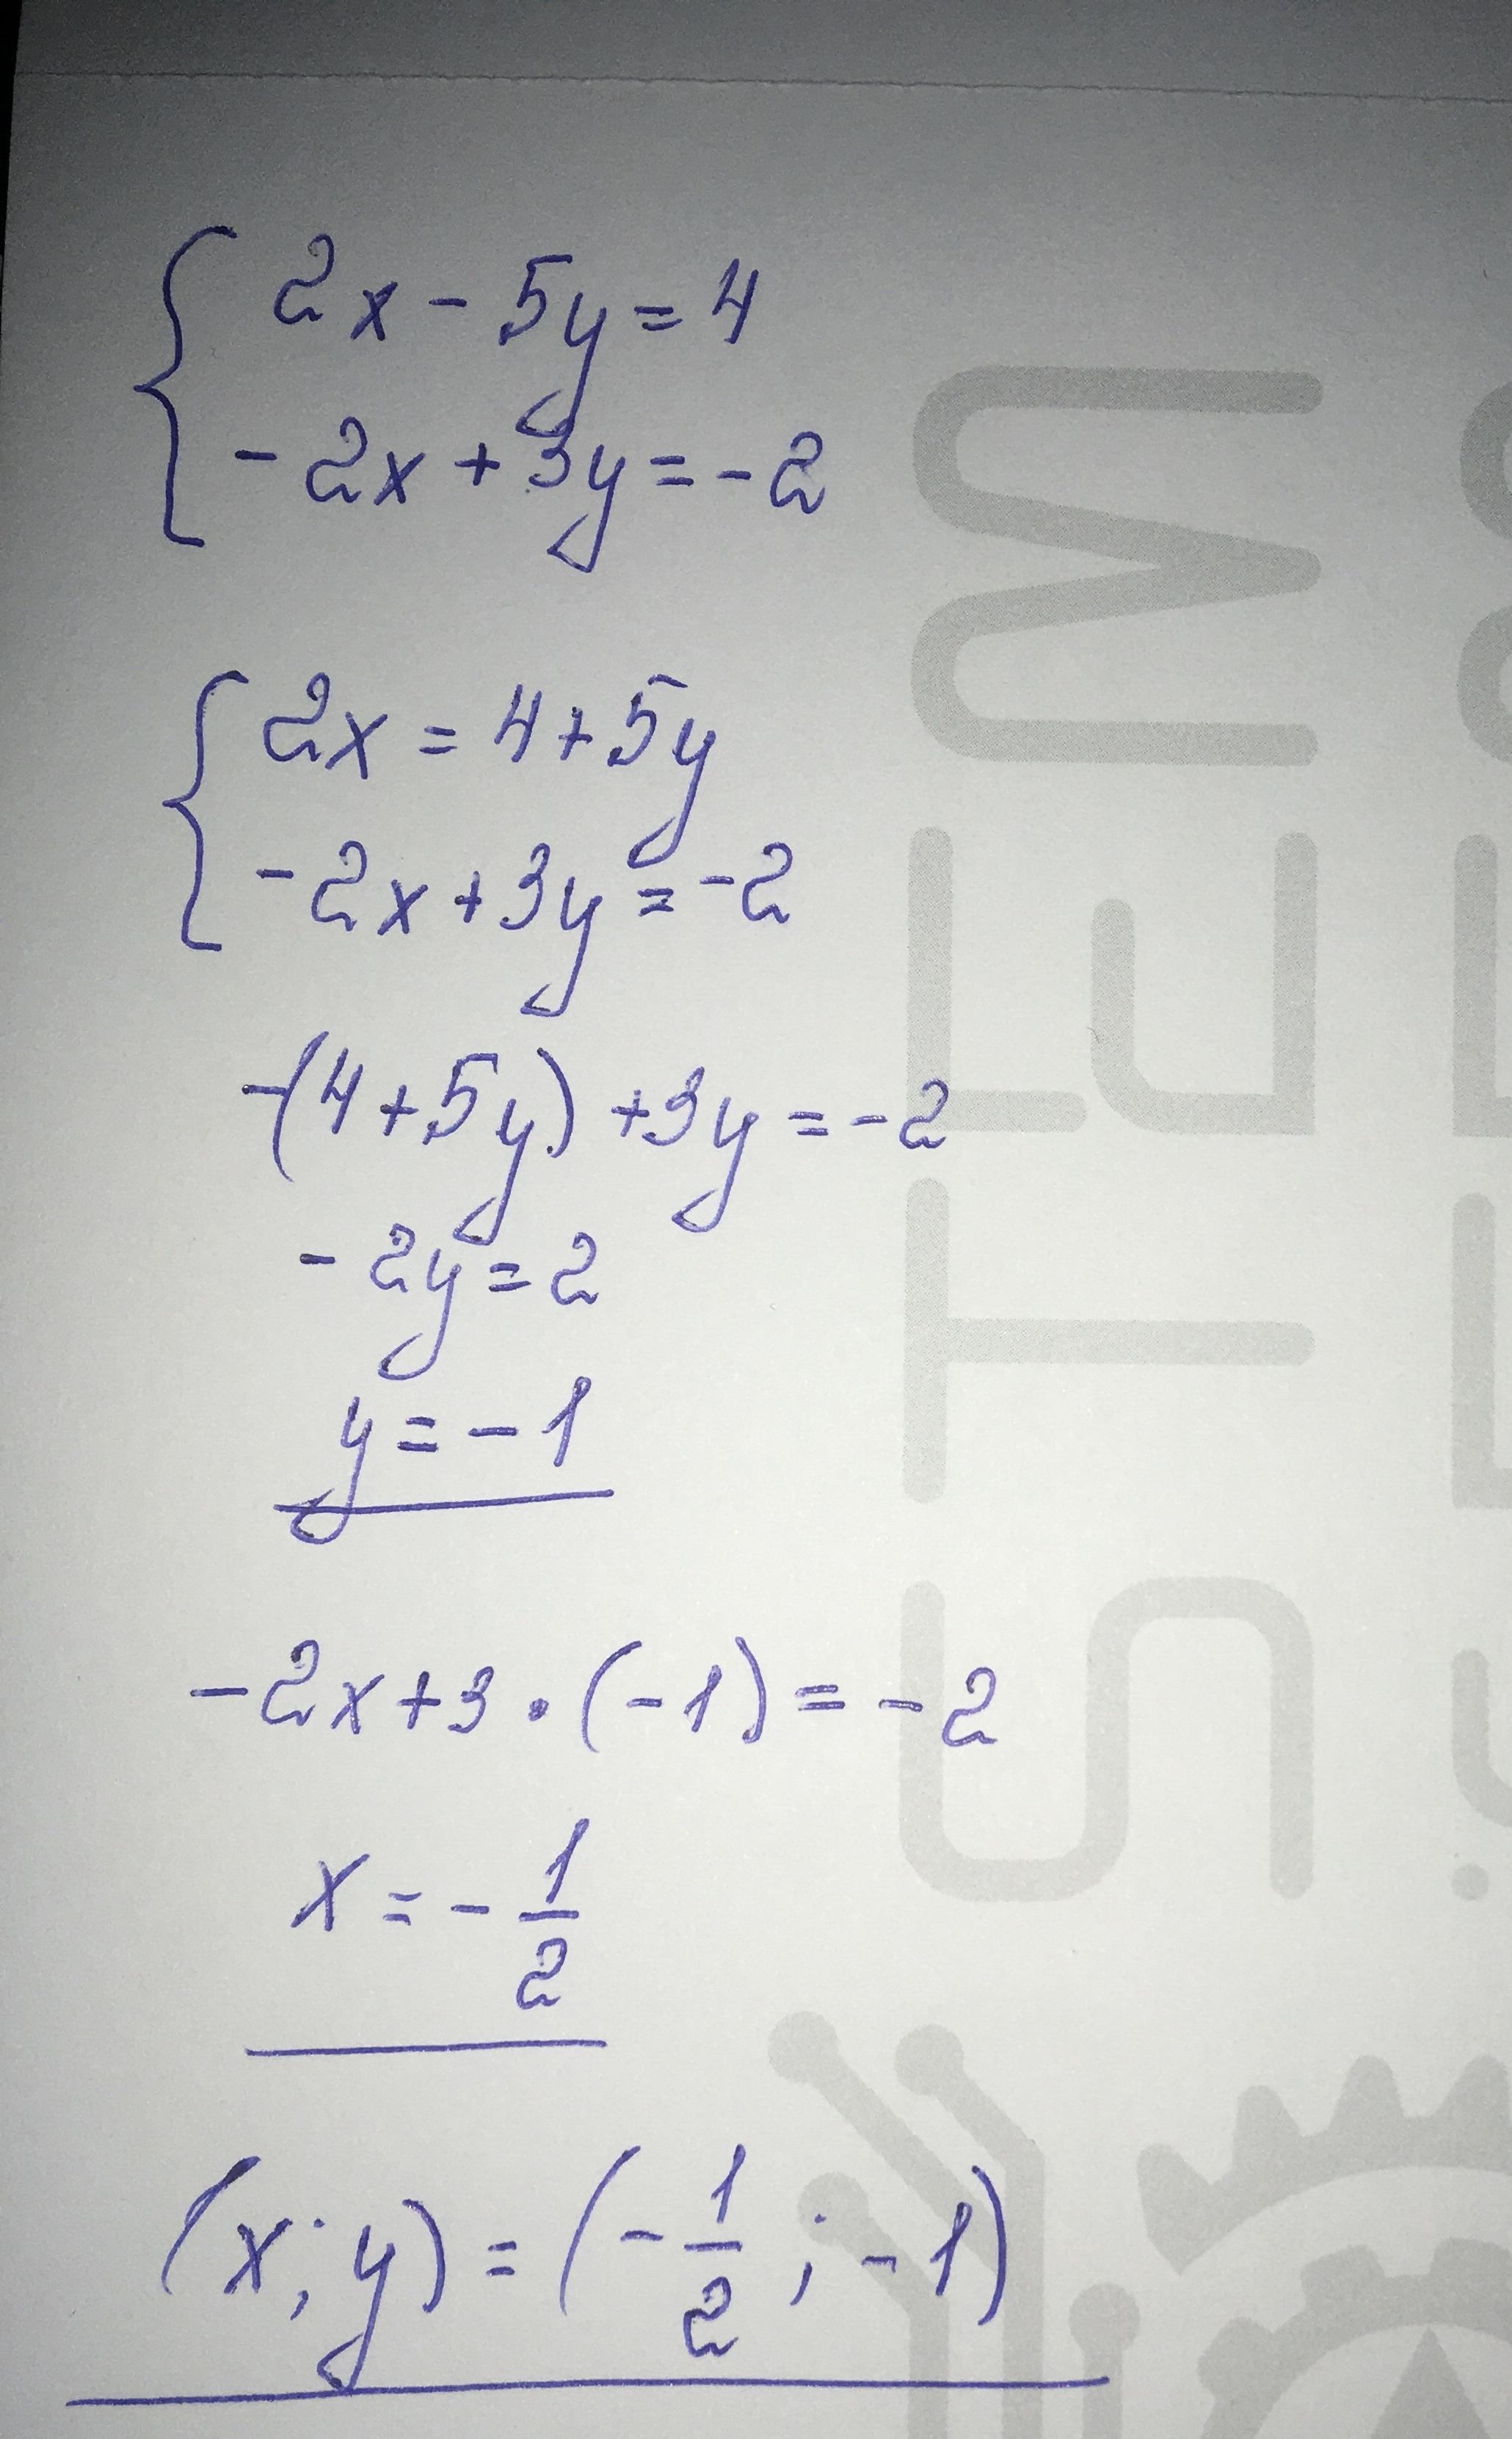 2x - 5y = 4
-2x + 3y = -2
2x = 4 + 5y
-2x + 3y = -2
-(4 + 5y) + 3y = -2
-2y = 2
y = -1
-2x + 3 · (-1) = -2
x = - 1/2
(x; y) = (- 1/2 ; -1)
SYSTEM